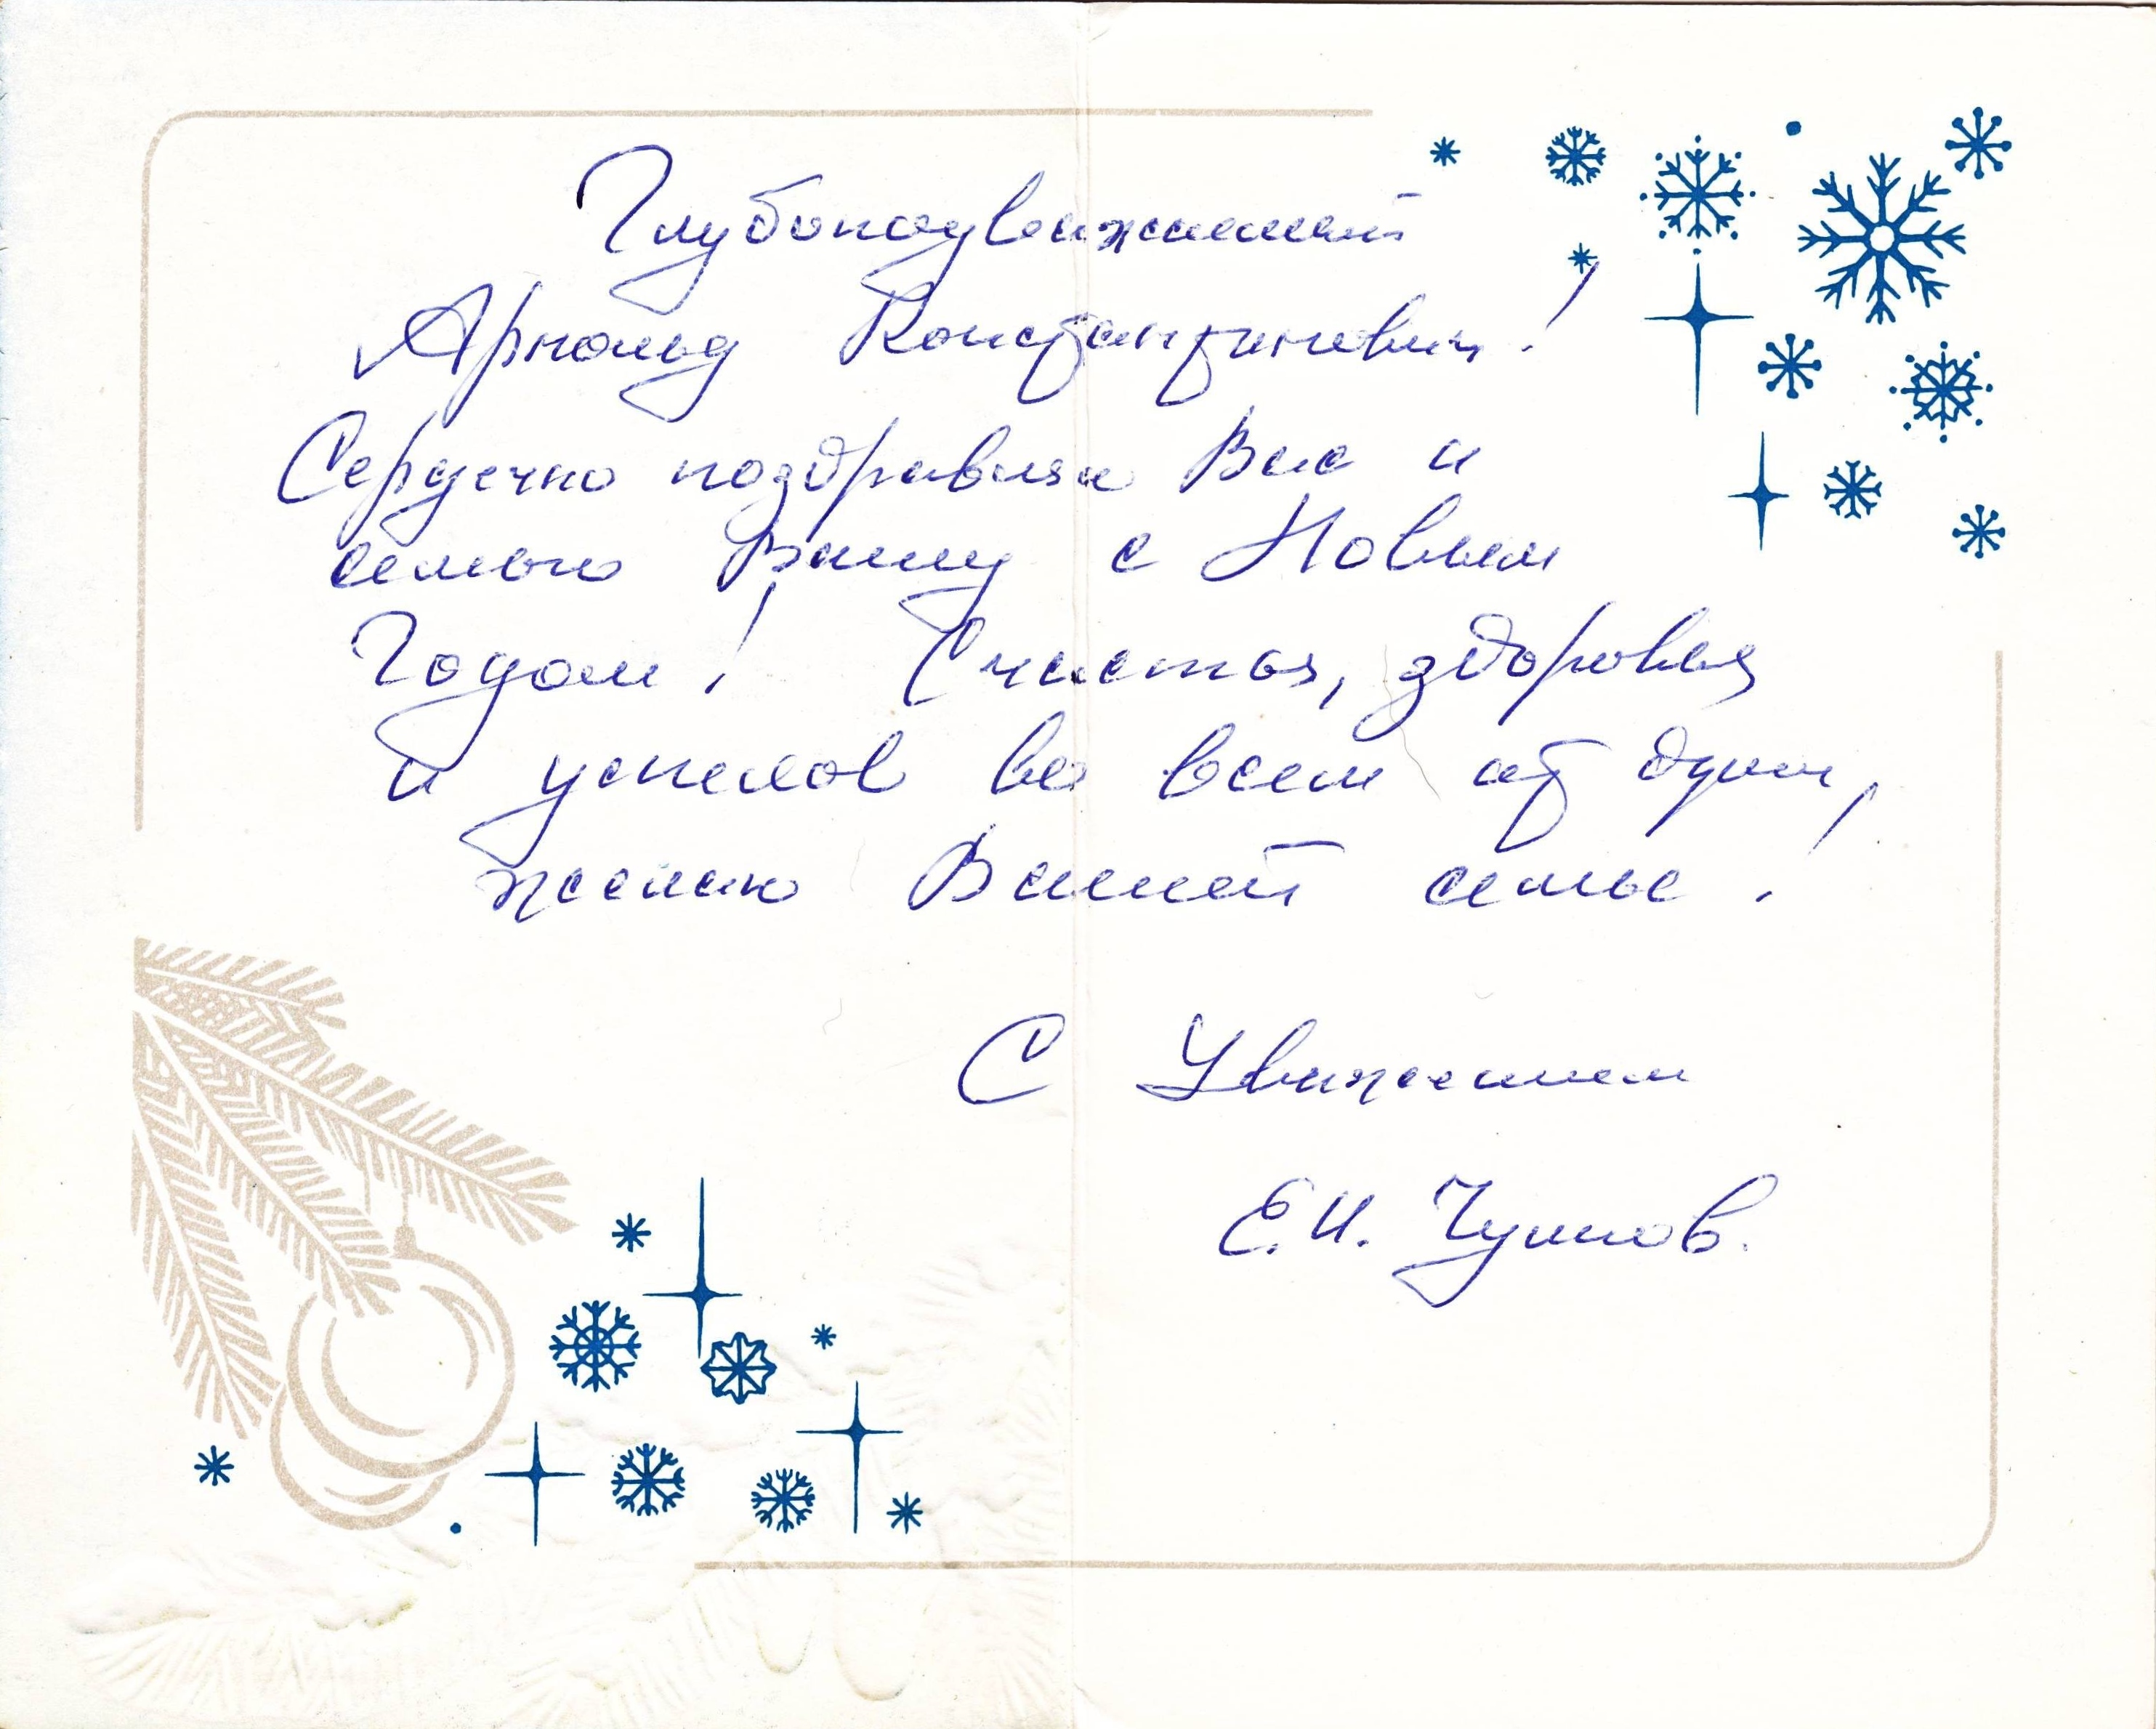 Глубокоуважаемый
Арнольд Константинович!
Сердечно поздравляю Вас и
семью Вашу с Новым
Годом! Счастья, здоровья
и успехов во всем от души,
желаю Вашей семье!
С Уважением
Е.И.